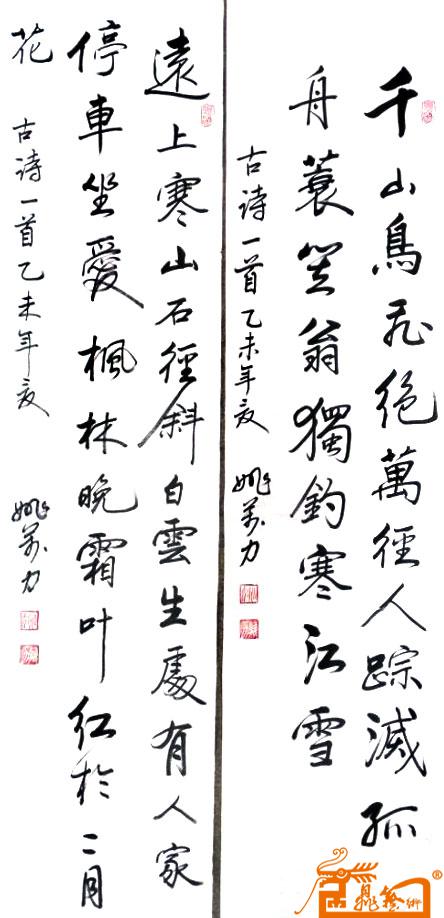 千山鳥飛絕萬徑人踪滅孤
舟蓑笠翁獨釣寒江雪
古诗一首乙未年夏
姚万力
遠上寒山石徑斜白雲生處有人家
停車坐愛楓林晚霜叶红於二月
花
古诗一首乙未年夏
姚万力